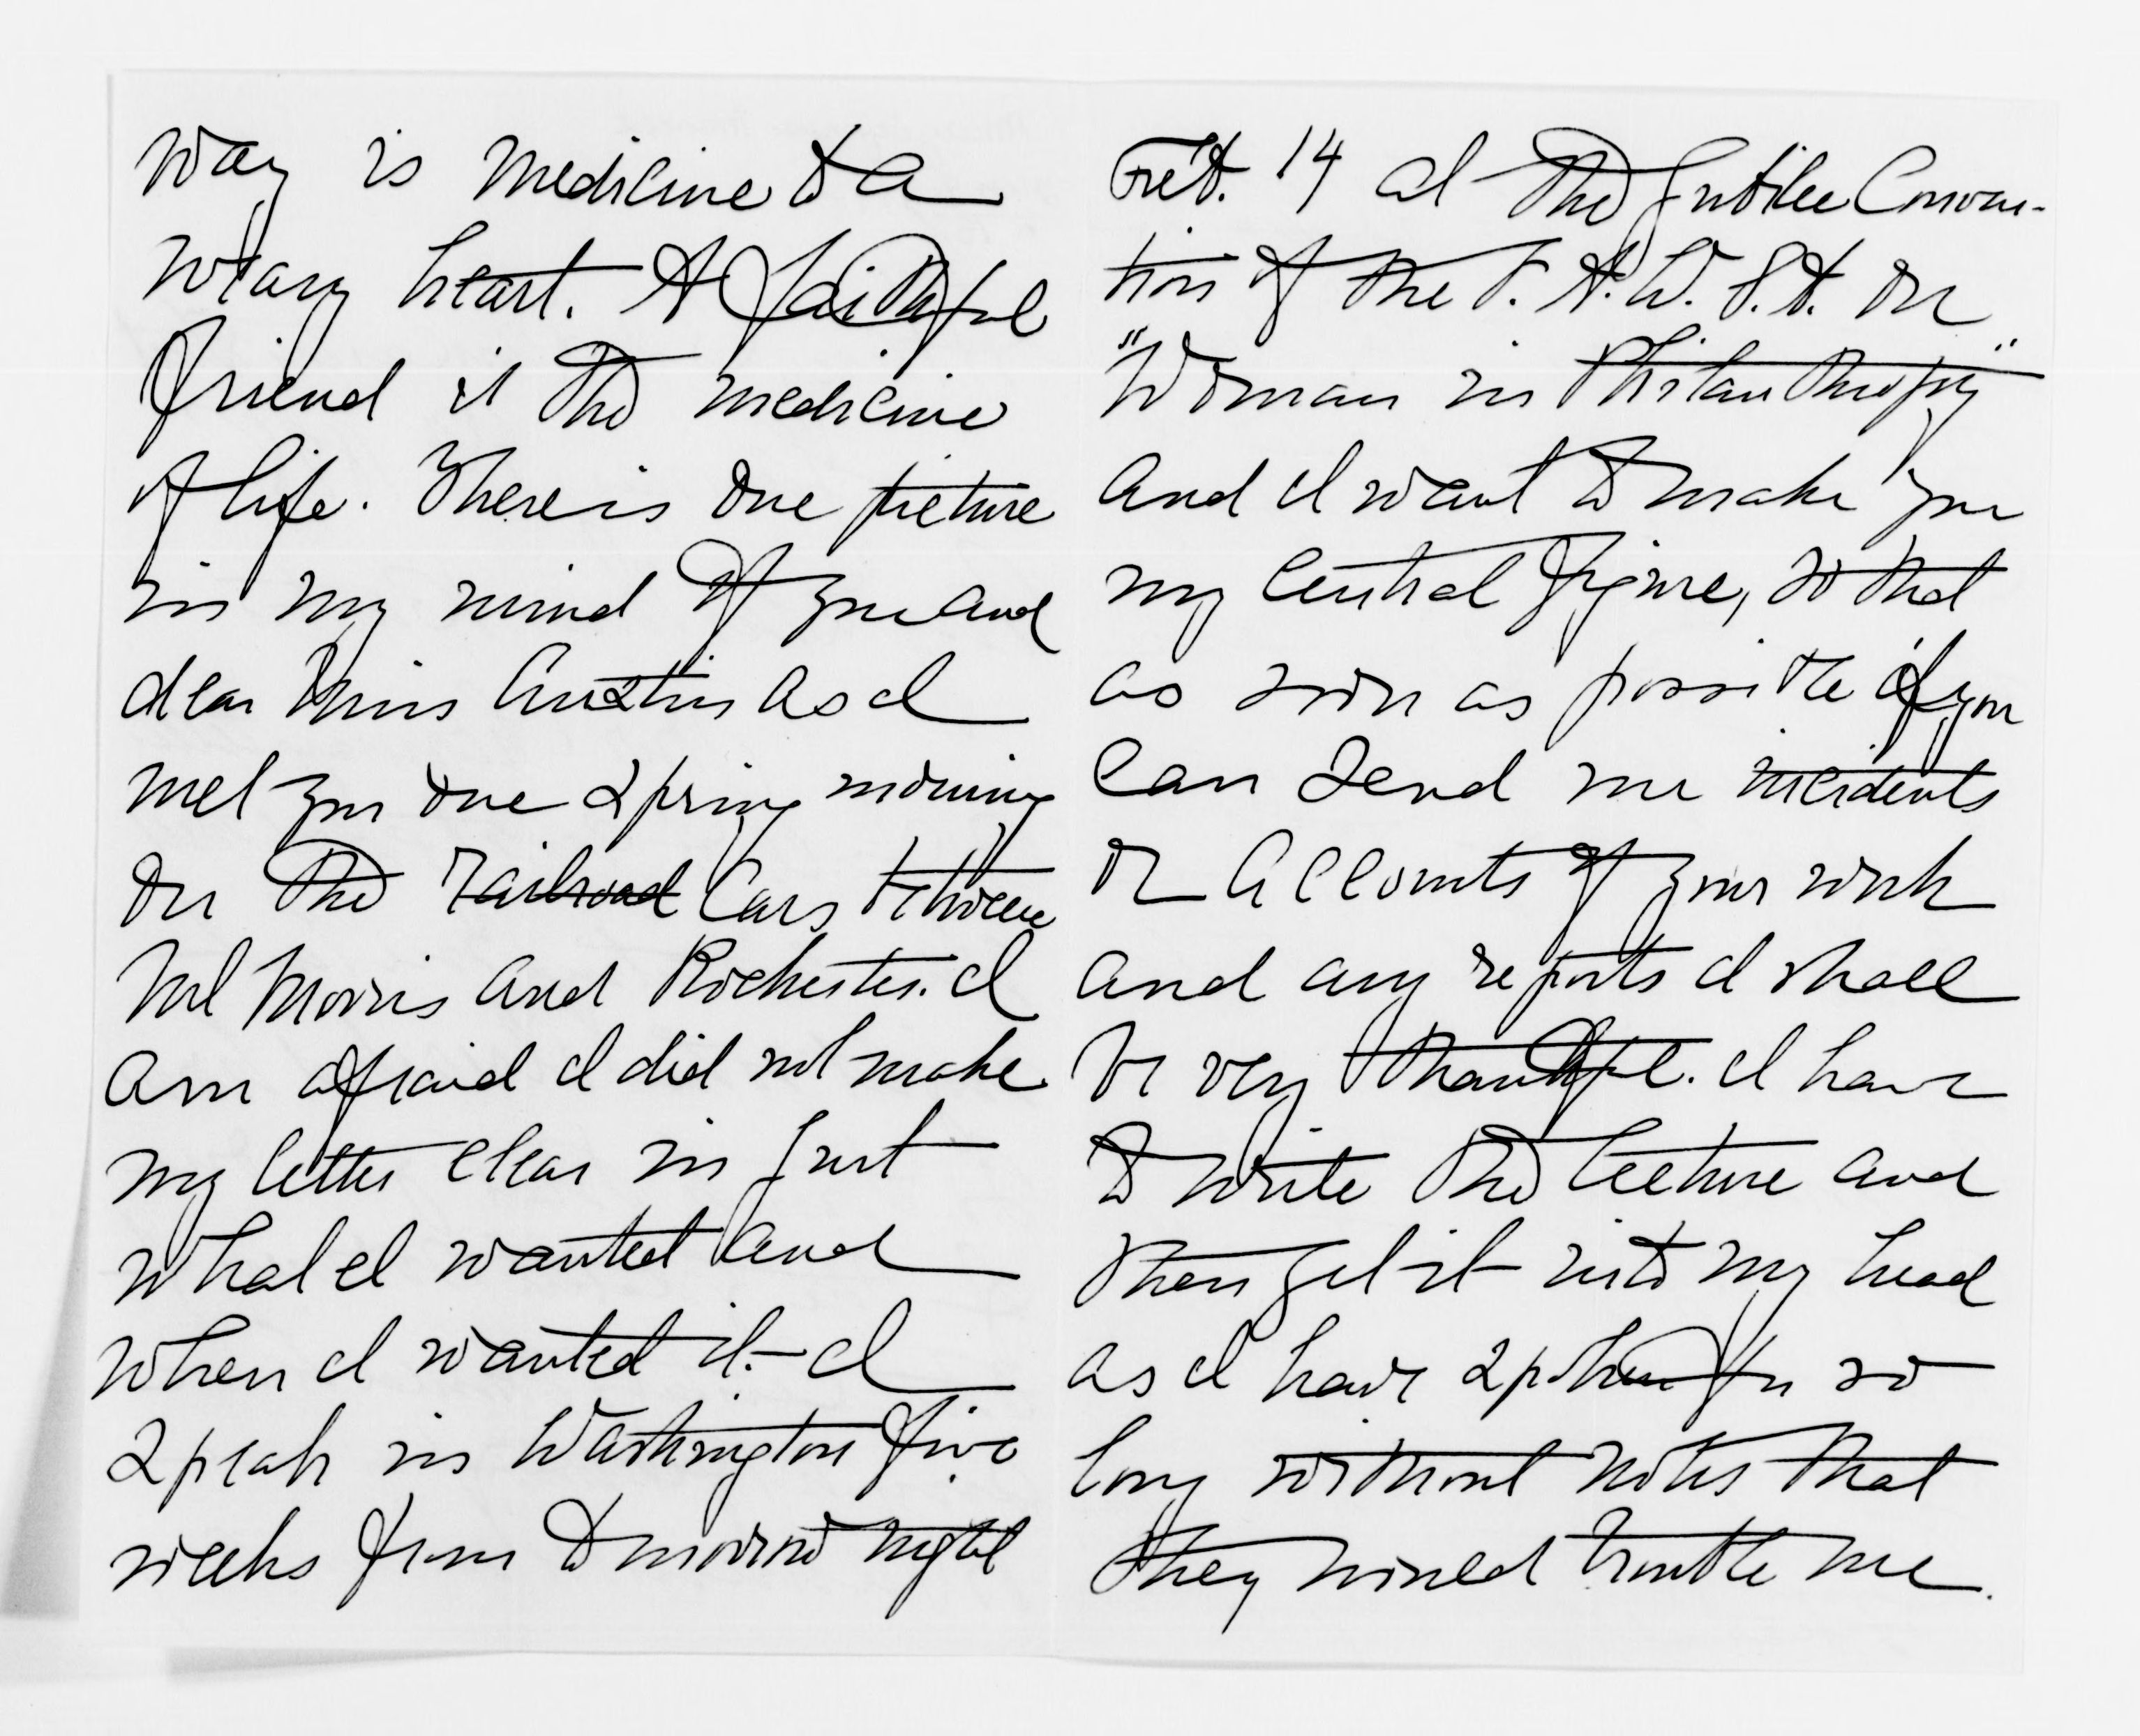 way is medicine to a
weary heart. A faithful
friend is the medicine
of life. There is one picture
in my mind of you and
dear Miss Austin as I
met you one spring morning
on the railroad cars between
Mt Morris and Rochester. I
am afraid I did not make
my letter clear in just
what I wanted and
when I wanted it. I
speak in Washington five
weeks from tomorrow night
Feb. 14 at the Jubilee Conven-
tion of the N. A. W. S. A. on
"Woman in Philanthropy"
and I want to make you
my central figure, so that
as soon as possible if you
can send me incidents
or accounts of your work
and any reports I shall
be very thankful. I have
to write the lecture and
then get it into my head
as I have spoken for so
long without notes that
they would trouble me.